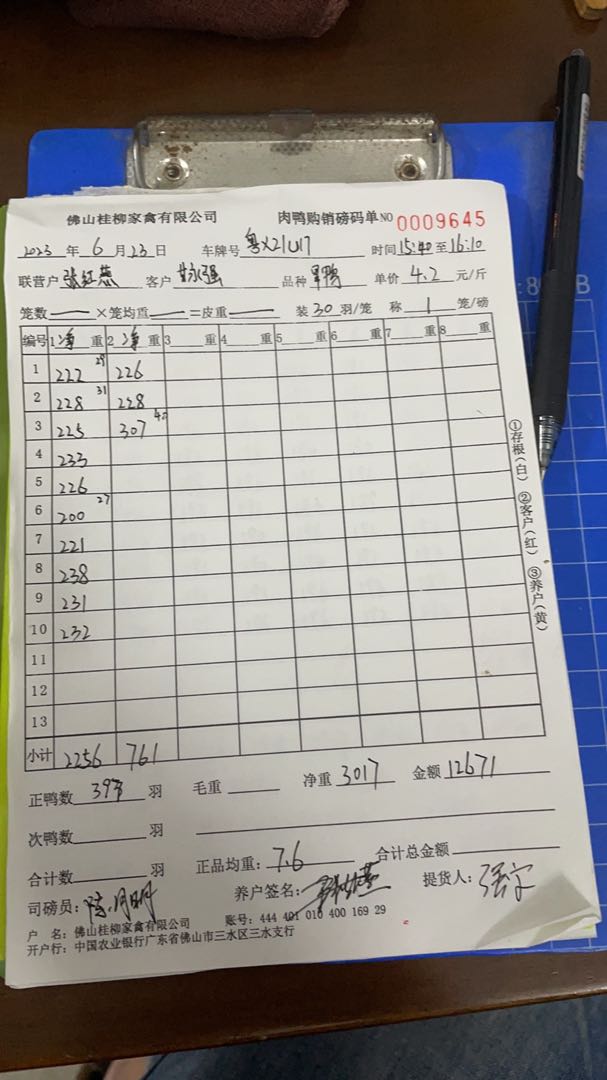 佛山桂柳家禽有限公司 肉鸭购销磅码单 NO 0009645
2023 年 6 月 23 日 车牌号 粤X21U17 时间 15:40 至 16:10
联营户 张红燕 客户 甘永强 品种 旱鸭 单价 4.2 元/斤
笼数 — ×笼均重 — =皮重 — 装 30 羽/笼 称 1 笼/磅
编号 1 净 重 2 净 重 3 重 4 重 5 重 6 重 7 重 8 重
1 222 29 226
2 228 31 228
3 225 307 40
4 233
5 226
6 200 27
7 221
8 238
9 231
10 232
11
12
13
小计 2256 761
正鸭数 397 羽 毛重 净重 3017 金额 12671
次鸭数 羽
合计数 羽 正品均重: 7.6 合计总金额
司磅员: 陈月明 养户签名: 提货人:
户 名: 佛山桂柳家禽有限公司 账号: 444 401 010 400 169 29
开户行: 中国农业银行广东省佛山市三水区三水支行
①存根(白) ②客户(红) ③养户(黄)